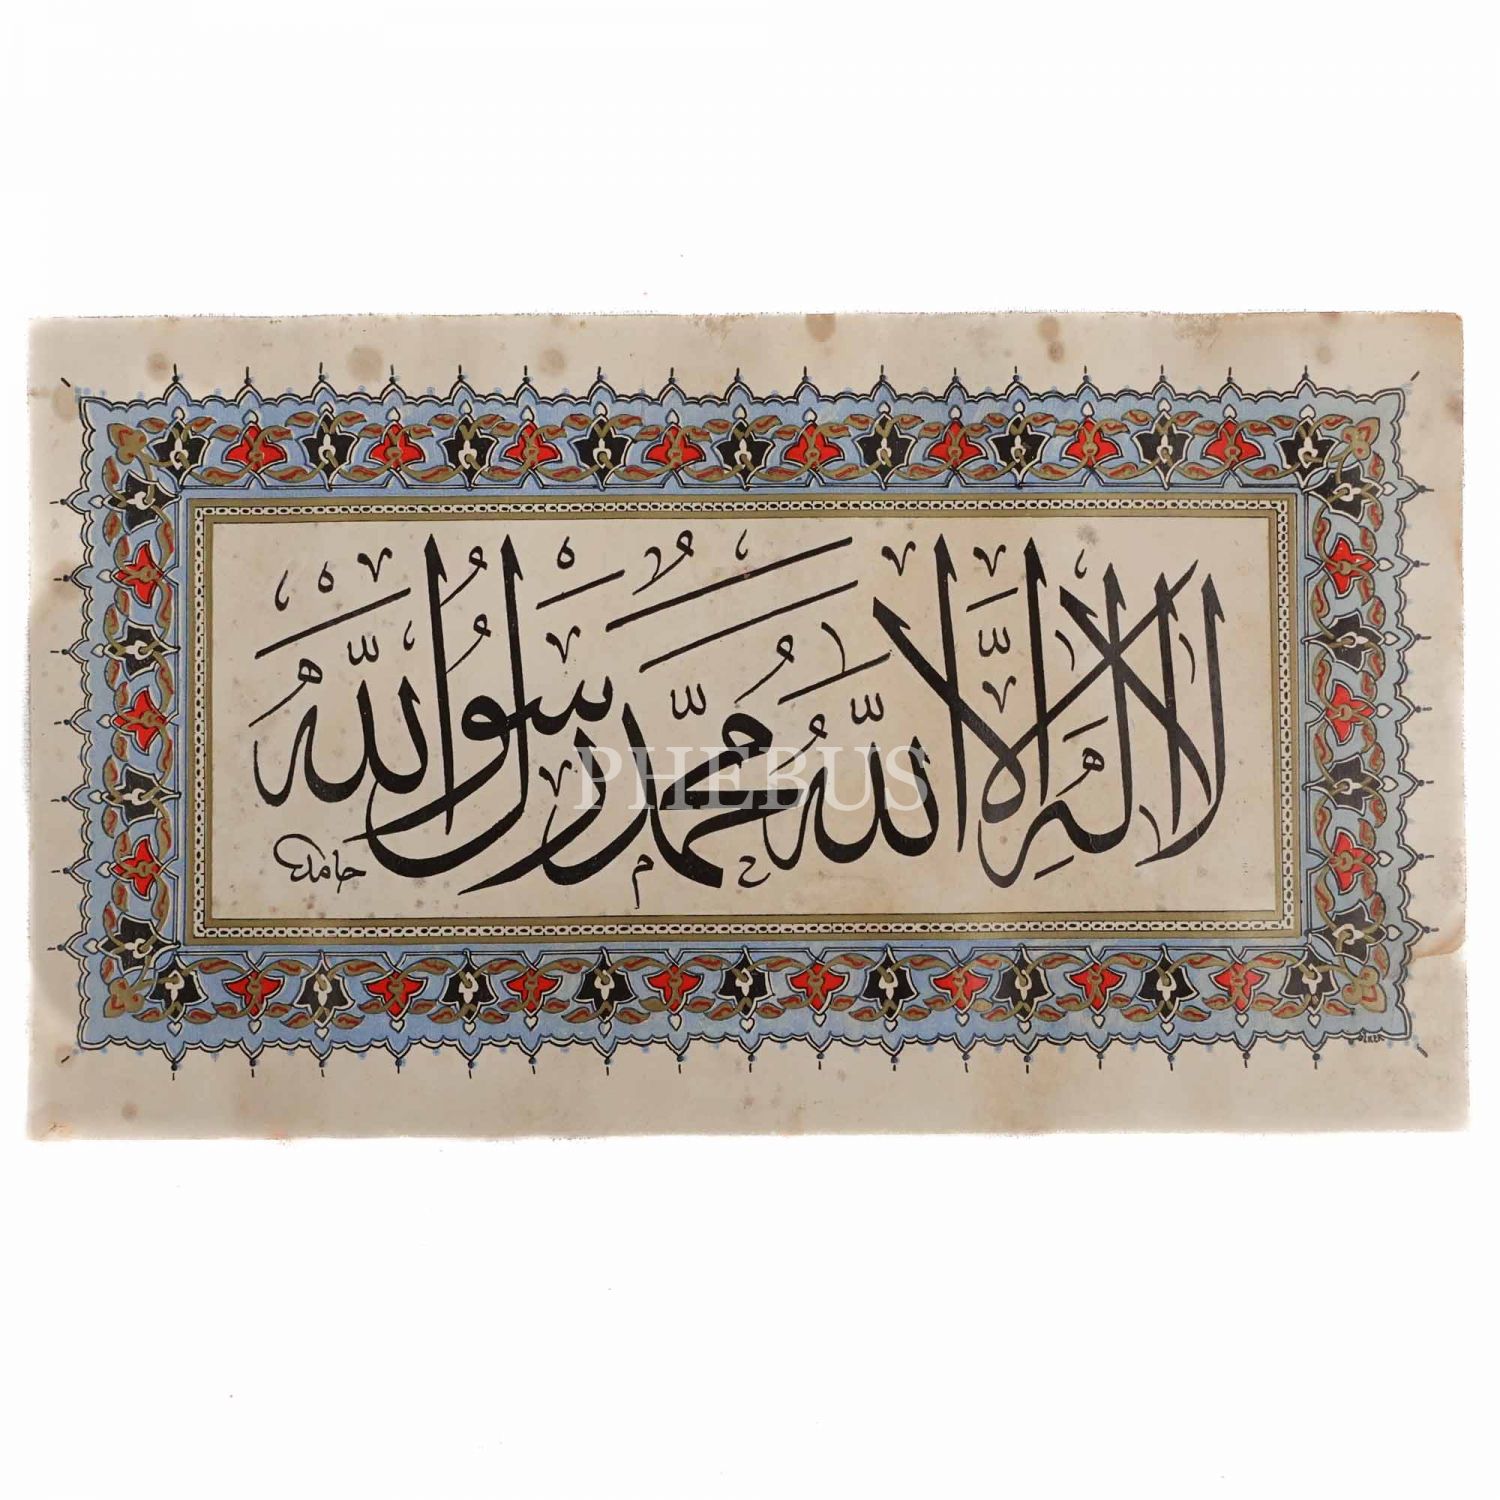 لَا إِلٰهَ إِلَّا اللّٰهُ مُحَمَّدٌ رَسُولُ اللّٰهِ
حامد
PHEBUS